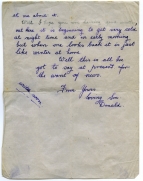 at me about it.
Well I hope you are
out here it is beginning to get very cold
at night time and in early morning
but when one looks back it is just
like winter at home
Well this is all I've
got to say at present for
the want of more.
From Your
Loving Son
Donald